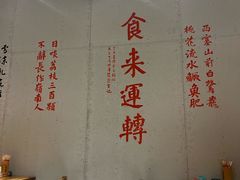 西塞山前白鷺飛
桃花流水鱖魚肥
食来運轉
日啖荔枝三百顆
不辭長作嶺南人